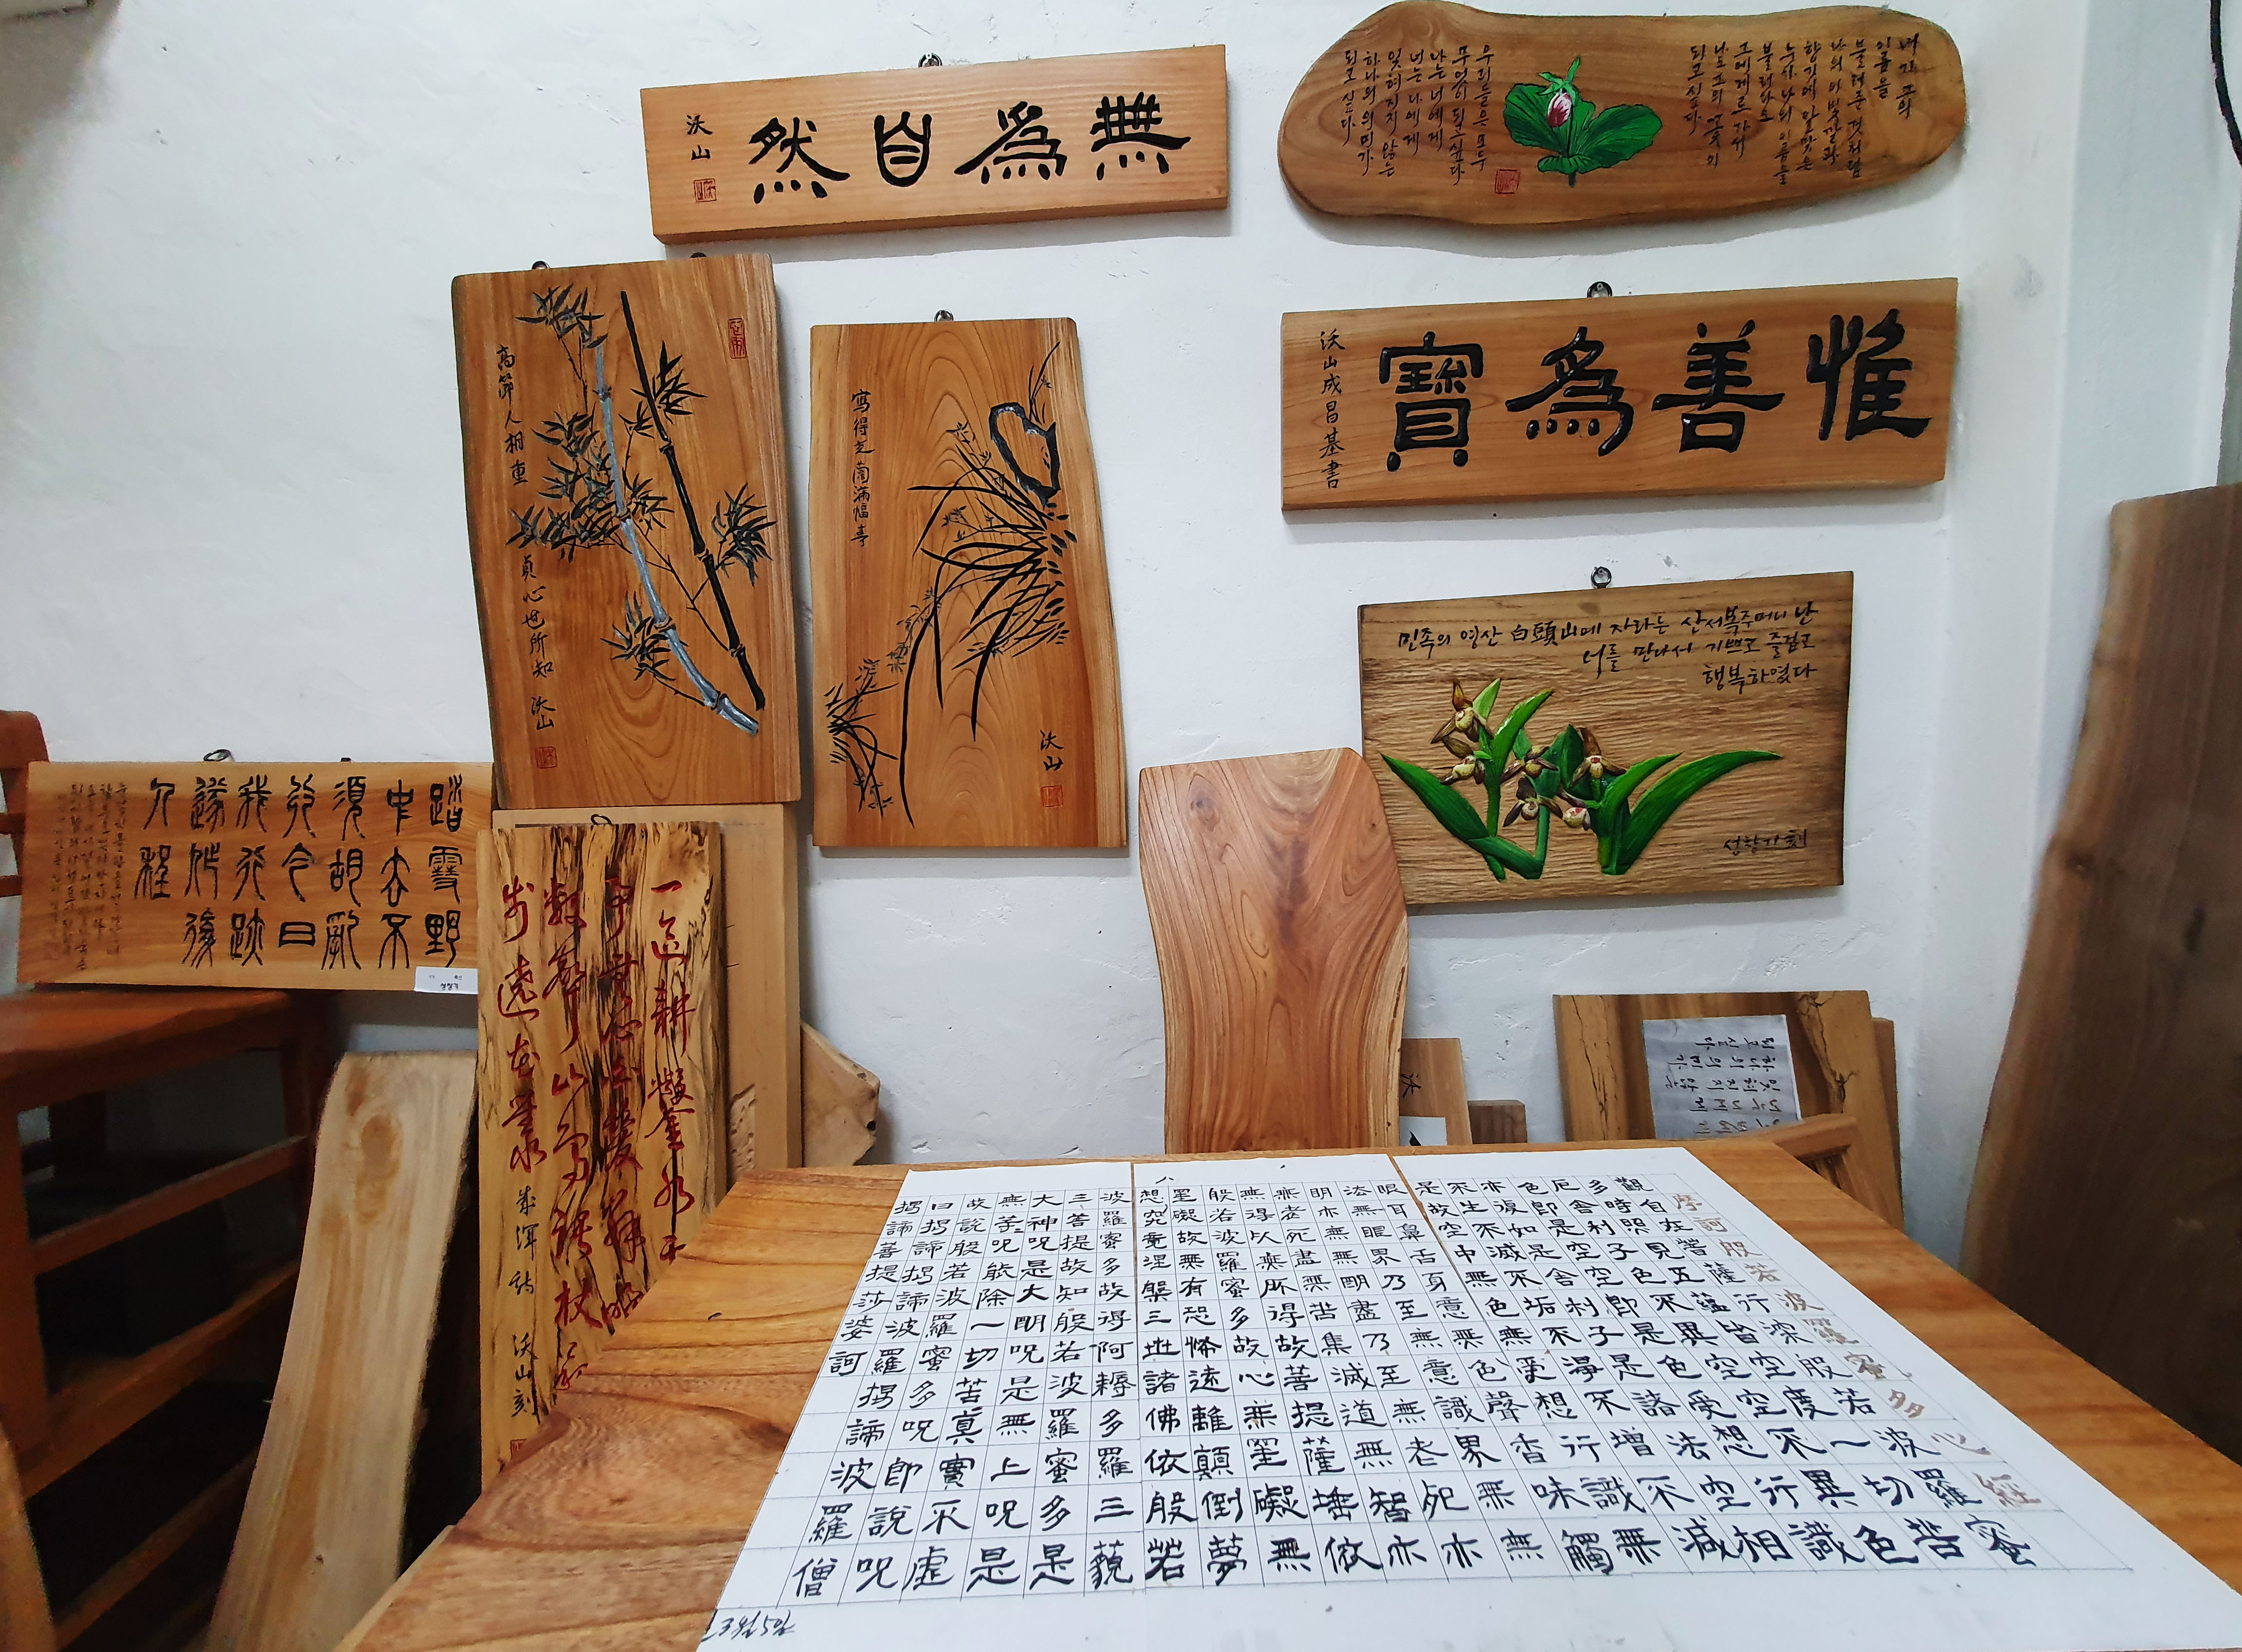 無爲自然
沃山
내가 그의
이름을
불러준 것처럼
나의 이 빛깔과
향기에 알맞은
누가 나의 이름을
불러다오
그에게로 가서
나도 그의 꽃이
되고 싶다
우리들은 모두
무엇이 되고 싶다
나는 너에게
너는 나에게
잊혀지지 않는
하나의 의미가
되고 싶다
惟善爲寶
沃山成昌基書
高節人相重 貞心世所知 沃山
寫得芝蘭滿幅春
沃山
민족의 영산 白頭山에 자라는 산서복주머니난
너를 만나서 기쁘고 즐겁고
행복하였다
성창기 刻
踏雪野
中去不
須胡亂
行今日
我行跡
遂作後
人程
沃山刻
摩訶般若波羅蜜多心經
觀自在菩薩行深般若波羅蜜
多時照見五蘊皆空度一切苦
厄舍利子色不異空空不異色
色即是空空即是色受想行識
亦復如是舍利子是諸法空相
不生不滅不垢不淨不增不減
是故空中無色無受想行識無
眼耳鼻舌身意無色聲香味觸
法無眼界乃至無意識界無無
明亦無無明盡乃至無老死亦
無老死盡無苦集滅道無智亦
無得以無所得故菩提薩埵依
般若波羅蜜多故心無罣礙無
罣礙故無有恐怖遠離顛倒夢
想究竟涅槃三世諸佛依般若
波羅蜜多故得阿耨多羅三藐
三菩提故知般若波羅蜜多是
大神呪是大明呪是無上呪是
無等呪能除一切苦眞實不虛
故說般若波羅蜜多呪即說呪
曰揭諦揭諦波羅揭諦波羅僧
揭諦菩提莎婆訶